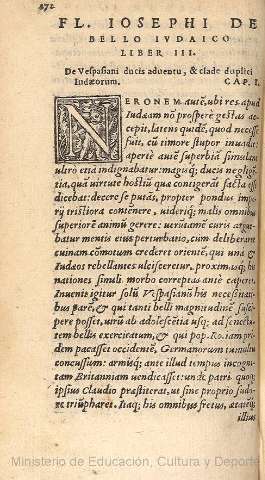 872
FL. IOSEPHI DE
BELLO IVDAICO
LIBER III.
De Vespasiani ducis adventu, & clade duplici
Iudæorum. CAP. I.
NERONEM autē, ubi res apud
Iudæam nō prosperè gestas ac-
cepit, latens quidē, quod necesse
fuit, cū timore stupor invadit:
apertè autē superbiā simulans
ultro etiā indignabatur: magisq́; ducis negligē-
tia, quā virtute hostiū quæ contigerāt facta esse
dicebat: decere se putās, propter pondus impe-
rij tristiora contēnere, uideriq́; malis omnibus
superiorē animū gerere: uerùm tamē curis argue-
batur mentis eius perturbatio, cum deliberaret
cuinam cōmotum crederet orientē, qui una &
Iudæos rebellantes ulcisceretur. proximasq́;
nationes simili morbo correptas antè caperet.
Invenit igitur solū Vespasianū his necessitati-
bus parē, & qui tanti belli magnitudinē susci-
pere posset, virū ab adolescētia usq; ad senectu-
tem bellis exercitatum, & qui pop. Ro. iam pri-
dem pacasset occidentē, Germanorum tumultu
concussum: armisq́; ante illud tempus incogni-
tam Britanniam uendicasset: unde patri quoq;
ipsius Claudio præstiterat, ut sine proprio sudo-
re triūpharet. Itaq; his omnibus fretus,
illius
Ministerio de Educación, Cultura y Deporte